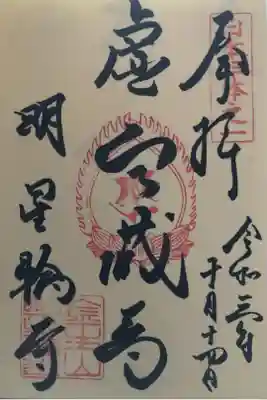 奉拝
令和三年
十月十四日
虚空蔵
明星輪寺
金生山